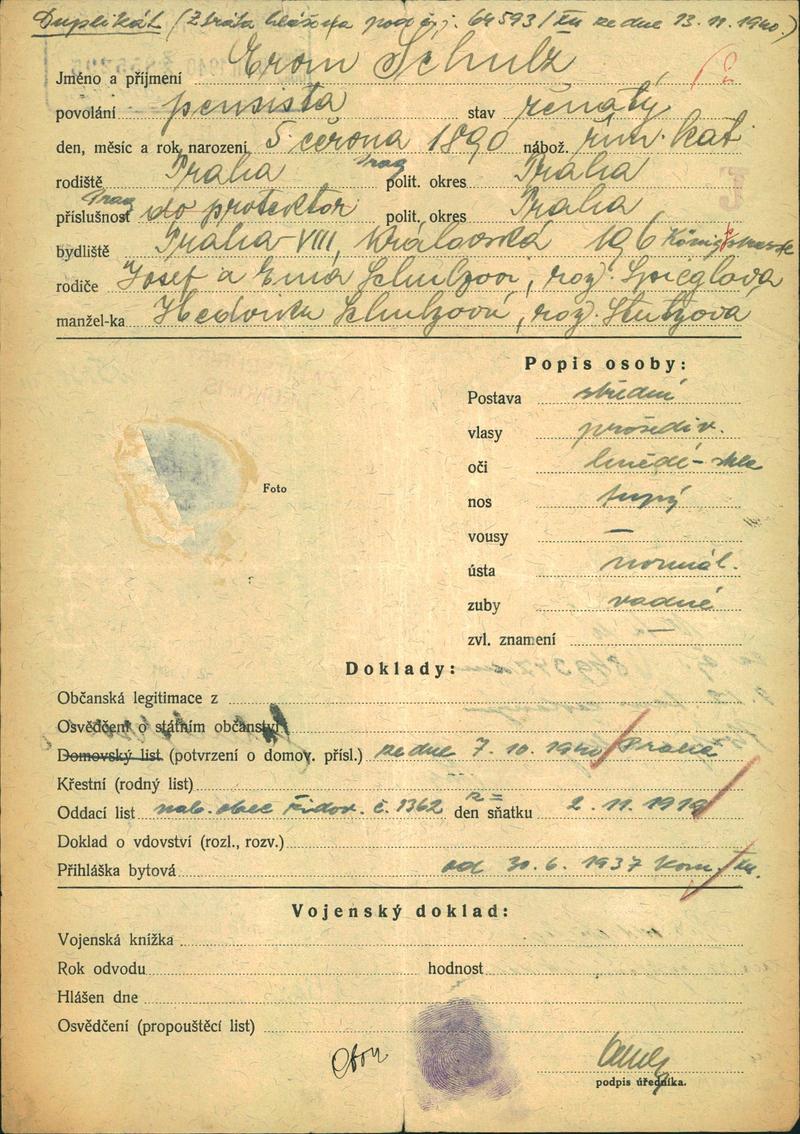 Duplikát (Ztráta hlášena pod čj. 64593/ ze dne 13. 11. 1940.)
Jméno a příjmení Erom Schulz
povolání pensista stav ženatý
den, měsíc a rok narození 5. června 1890 nábož. řím. kat
rodiště Praha Prag polit. okres Praha
příslušnost Prag do protektor polit. okres Praha
bydliště Praha-VIII, Královská 196 Königstrasse
rodiče Josef a Ema Schulzovi, roz. Spieglova
manžel-ka Hedvika Schulzová, roz. Stutzová
Popis osoby:
Postava střední
vlasy prošediv.
oči hnědé-
nos tupý
vousy —
ústa normál.
zuby vadné
zvl. znamení —
Foto
Doklady:
Občanská legitimace z
Osvědčení o státním občanství
Domovský list (potvrzení o domov. přísl.) ze dne 7. 10. 1940 Praha
Křestní (rodný list)
Oddací list nab. obec židov. č. 1362 den sňatku 2. 11. 1919
Doklad o vdovství (rozl., rozv.)
Přihláška bytová od 30. 6. 1937 kom.
Vojenský doklad:
Vojenská knížka
Rok odvodu hodnost
Hlášen dne
Osvědčení (propouštěcí list)
podpis úředníka.